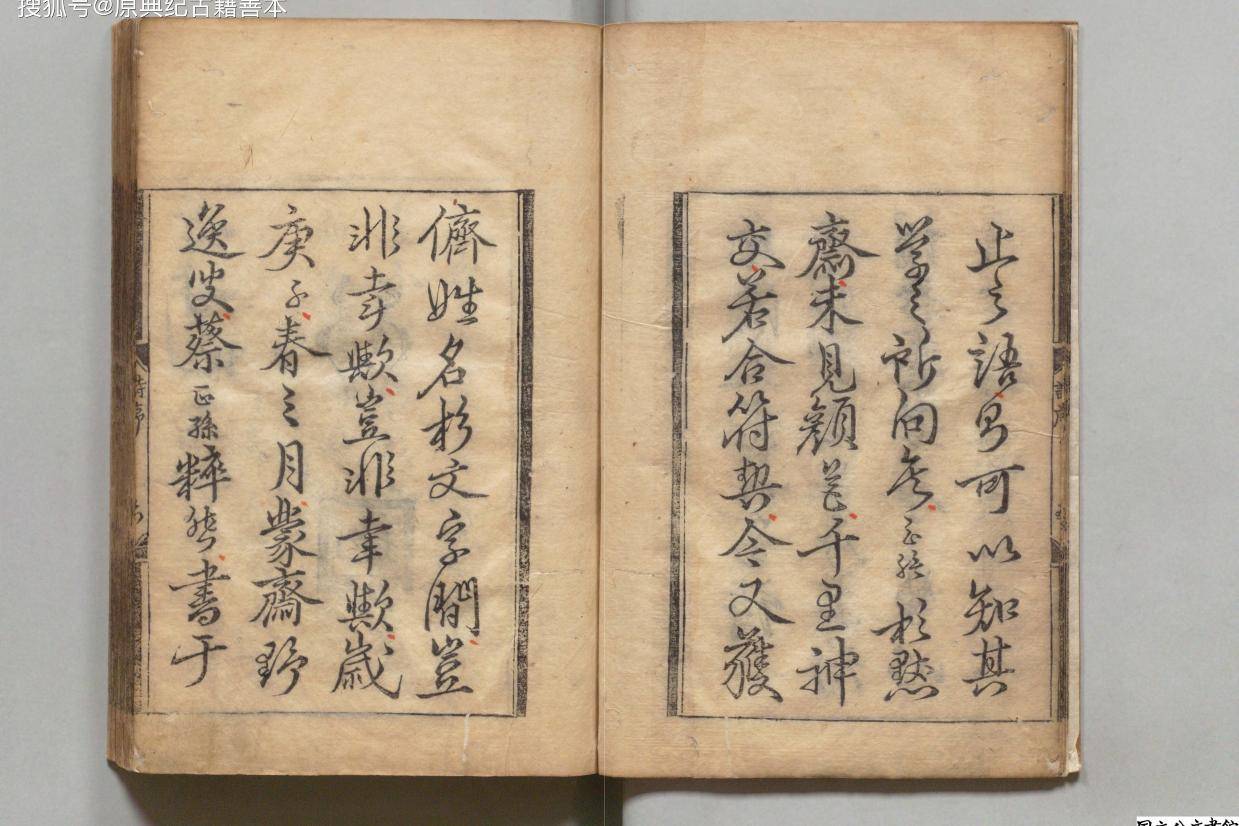 搜狐号@原典纪古籍善本
止之語即可以知其
學之所向矣正孫於默
齋未見顔色千里神
交若合符契今又獲
儕姓名於文字間豈
非幸歟豈非幸歟歲
庚子春之月蒙齋野
逸叟蔡正孫粹然書于
詩序